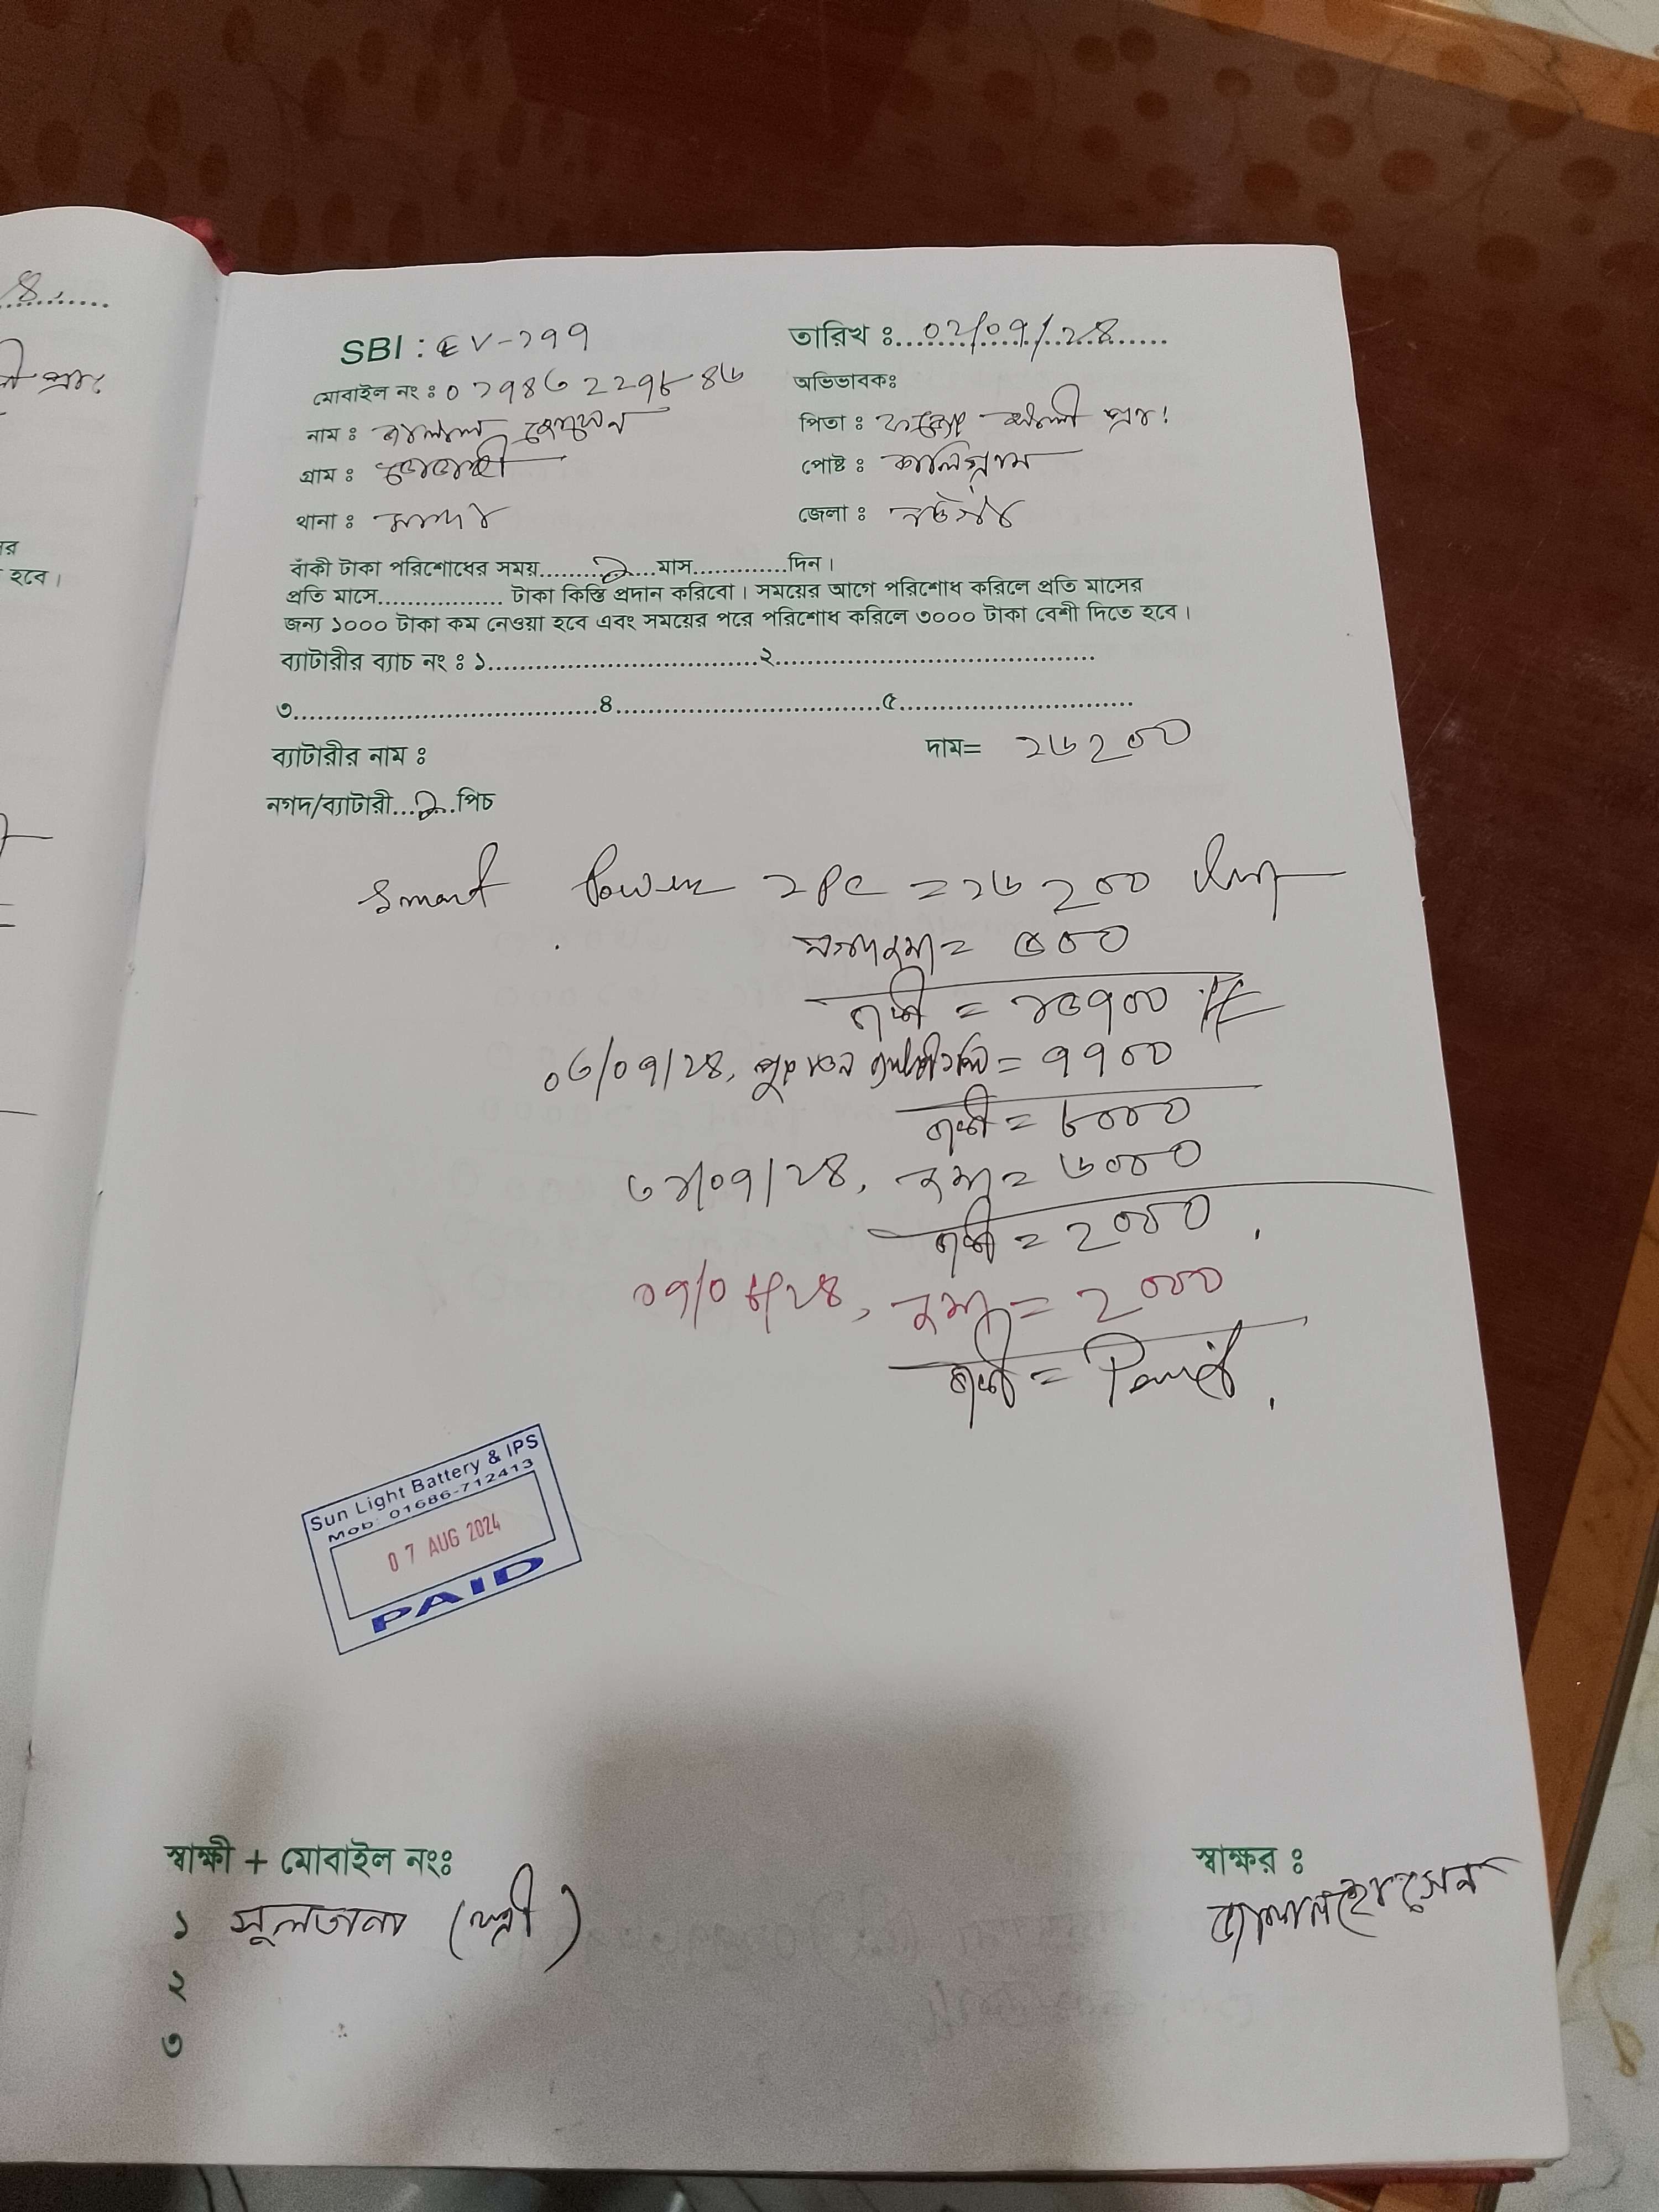 SBI : EV-১৭৭
তারিখ ঃ ০২/০৭/২৪
মোবাইল নং ঃ ০১৭৪৩২২৭৮৪৬
অভিভাবকঃ
নাম ঃ জালাল হোসেন
পিতা ঃ আলী প্রাং
গ্রাম ঃ
পোষ্ট ঃ কালিগ্রাম
থানা ঃ মান্দা
জেলা ঃ নওগাঁ
বাঁকী টাকা পরিশোধের সময়..........১....মাস.............দিন।
প্রতি মাসে................ টাকা কিস্তি প্রদান করিবো। সময়ের আগে পরিশোধ করিলে প্রতি মাসের
জন্য ১০০০ টাকা কম নেওয়া হবে এবং সময়ের পরে পরিশোধ করিলে ৩০০০ টাকা বেশী দিতে হবে।
ব্যাটারীর ব্যাচ নং ঃ ১..................................২........................................
৩......................................৪.................................৫.............................
ব্যাটারীর নাম ঃ
দাম= ১৬২০০
নগদ/ব্যাটারী...১...পিচ
Smart Power ১PC = ১৬২০০
জমা = ৫০০
বাকী = ১৫৭০০
০৩/০৭/২৪, পুরাতন ব্যাটারী = ৭৭০০
বাকী = ৮০০০
৩১/০৭/২৪, জমা = ৬০০০
বাকী = ২০০০
০৭/০৮/২৪, জমা = ২০০০
বাকী = Paid.
Sun Light Battery & IPS
Mob: 01686-712413
07 AUG 2024
PAID
স্বাক্ষী + মোবাইল নংঃ
স্বাক্ষর ঃ
১ সুলতানা (স্ত্রী)
জালাল হোসেন
২
৩